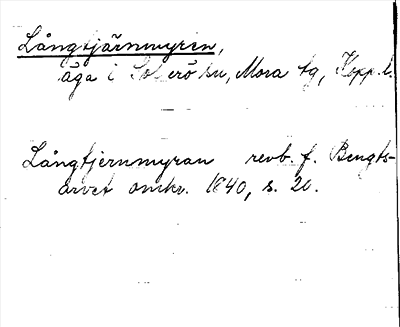 Långtjärnmyren,
äga i Solerö sn, Mora tg, Kopp. l.
Långtjernmyran revb. f. Bengts-
arvet omkr. 1840, s. 20.